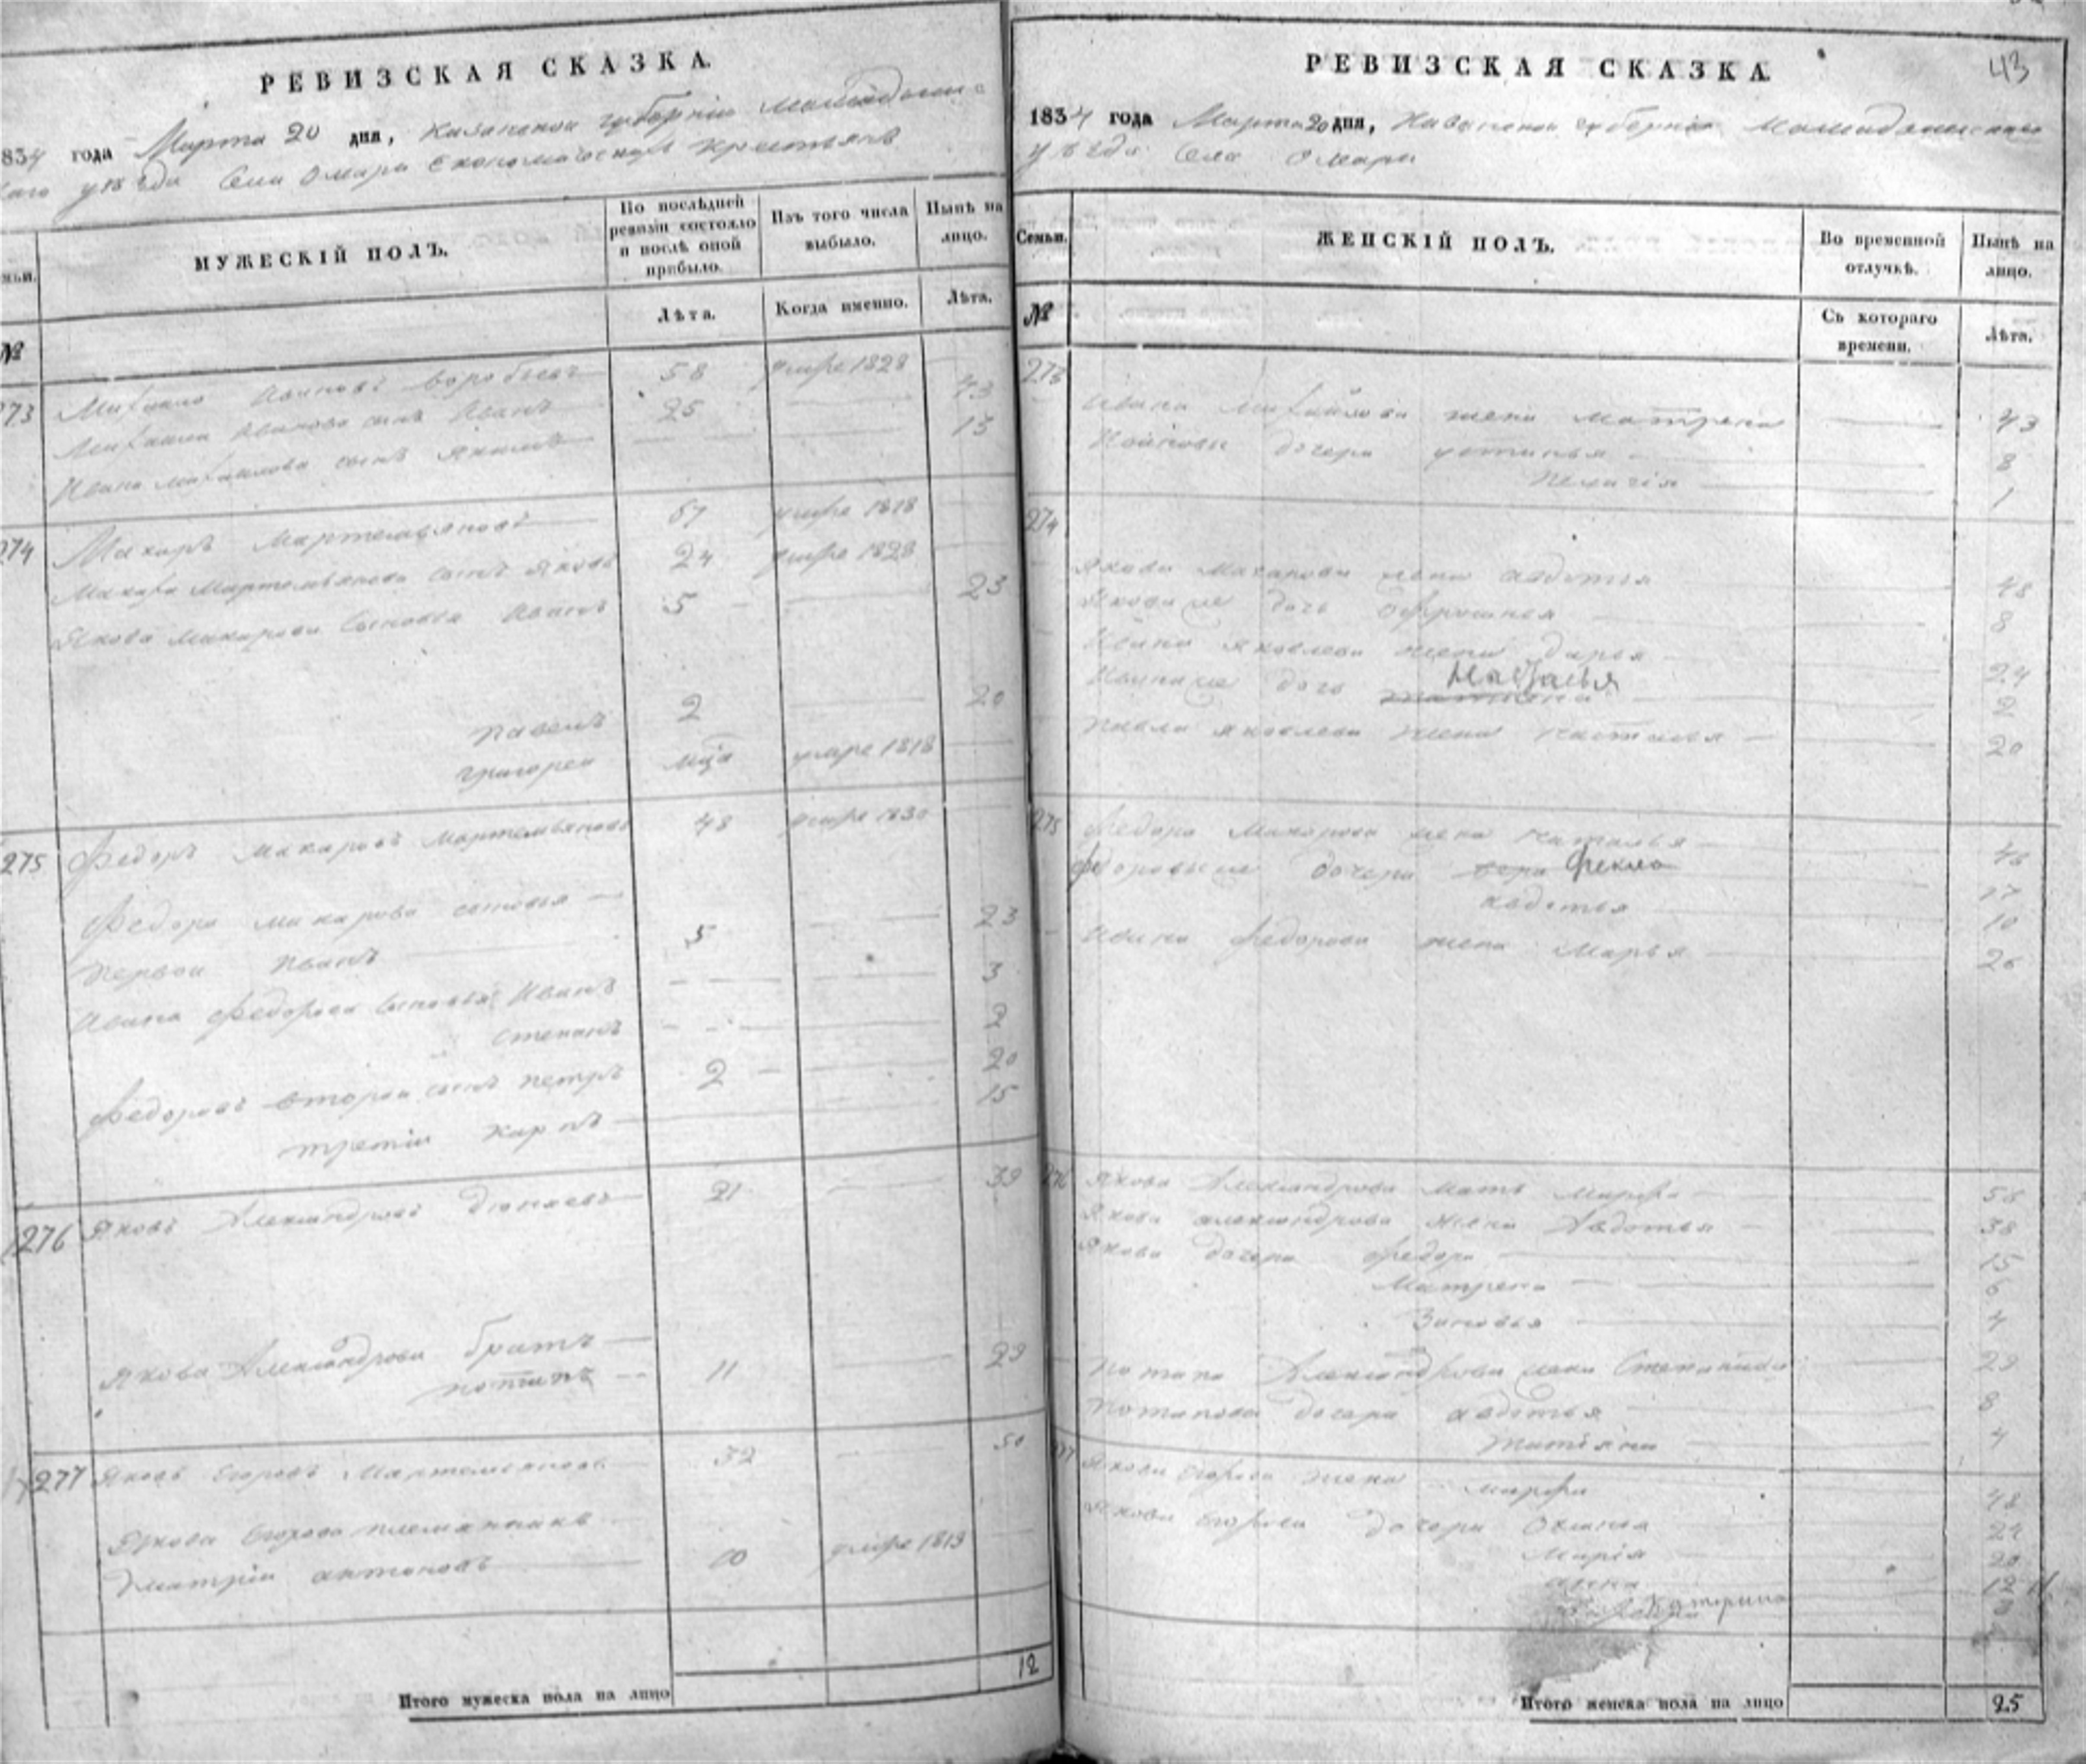 РЕВИЗСКАЯ СКАЗКА.
1834 года Марта 20 дня, Казанской губернии Мамадышс
каго уѣзда Села Омары Економическихъ крестьянъ
Семьи.
МУЖЕСКІЙ ПОЛЪ.
По послѣдней ревизіи состояло и послѣ оной прибыло.
Изъ того числа выбыло.
Нынѣ на лицо.
№
Лѣта.
Когда именно.
Лѣта.
273 Михайло Ивановъ Воробьевъ 58 умре 1828
Михаила Иванова сынъ Иванъ 25 43
Ивана Михаилова сынъ Якимъ 13
274 Макаръ Мартемьяновъ 67 умре 1818
Макара Мартемьянова сынъ Яковъ 24 умре 1828
Якова Макарова сыновья Иванъ 5 23
Павелъ 2 20
Григорей умре 1818
275 Федоръ Макаровъ Мартемьяновъ 48 умре 1830
Федора Макарова сыновья
Первой Иванъ 5 23
Ивана Федорова сыновья Иванъ 3
Степанъ 2
Федоровъ второй сынъ Петръ 2 20
третій Карпъ 15
276 Яковъ Александровъ Дюпаевъ 21 39
Якова Александрова братъ
Потапъ 11 29
277 Яковъ Егоровъ Мартемьяновъ 32 50
Якова Егорова племянникъ
Дмитрій Антоновъ 10 умре 1819
Итого мужеска пола на лицо 12
43
РЕВИЗСКАЯ СКАЗКА.
1834 года Марта 20 дня, Казанской губерніи Мамадышскаго
уѣзда Села Омары
Семьи.
ЖЕНСКІЙ ПОЛЪ.
Во временной отлучкѣ.
Нынѣ на лицо.
№
Съ котораго времени.
Лѣта.
273
Ивана Михайлова жена Матрена 43
Ивановы дочери Устинья 8
Пелагія 1
274
Якова Макарова жена Авдотья 48
Якова же дочь Офросинья 8
Ивана Яковлева жена Дарья 24
Ивана же дочь Наталья 2
Павла Яковлева жена Наталья 20
275 Федора Макарова жена Наталья 46
Федоровы же дочери Вера Фекла 17
Авдотья 10
Ивана Федорова жена Марья 26
276 Якова Александрова мать Марфа 58
Якова Александрова жена Авдотья 38
Якова дочери Федора 15
Матрена 6
Зиновья 4
Потапа Александрова жена Степанида 29
Потаповы дочери Авдотья 8
Татьяна 4
277 Якова Егорова жена Марфа 48
Якова Егорова дочери 22
Марія 20
Анна 12
Катерина
Итого женска пола на лицо 25